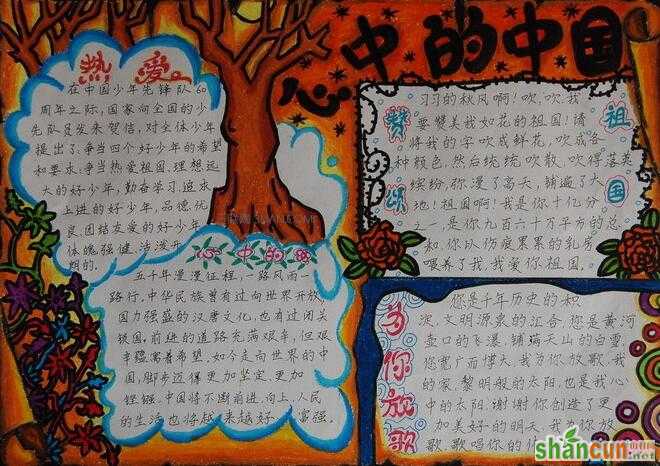 心中的中国
热爱
在中国少年先锋队60
周年之际,国家向全国的少
先队员发来贺信,对全体少年
提出了:争当四个好少年的希望
和要求:争当热爱祖国、理想远
大的好少年,勤奋学习、追求
上进的好少年,品德优
良、团结友爱的好少年
体魄强健、活泼开
朗的.
心中的
五千年漫漫征程,一路风雨一
路行,中华民族曾有过向世界开放
国力强盛的汉唐文化,也有过闭关
锁国,前进的道路充满艰辛,但艰
辛蕴寓着希望,如今走向世界的中
国,脚步迈得更加坚定、更加
铿锵.中国将不断前进、向上、人民
的生活也将越来越好、富强。
赞颂
祖国
习习的秋风啊!吹,吹,我
要赞美我如花的祖国!请
将我的字吹成鲜花,吹成各
种颜色,然后统统吹散,吹得落英
缤纷,你漫了高天,铺遍了大
地!祖国啊!我是你十亿分
之一,是你九百六十万平方的总
和,你以伤痕累累的乳房
喂养了我,我爱你祖国。
为你放歌
您是千年历史的和
淡,文明源泉的汇合,您是黄河
壶口的飞瀑,铺瑞天山的白雪,
您宽广而博大,我为你放歌,我
的家,黎明般的太阳,也是我心
中的太阳,谢谢你创造了更
加美好的明天,我为你放
歌,歌唱你的
shancun
.net